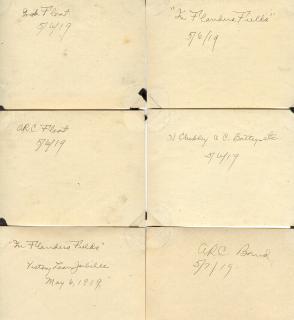 Float
5/6/19
"In Flanders Fields"
5/6/19
ARC Float
5/6/19
A C Battery
5/6/19
"In Flanders Fields"
Victory Loan Jubilee
May 6, 1919
ARC
5/7/19